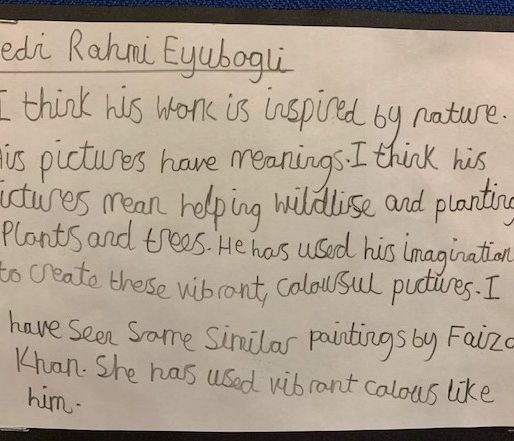 edri Rahmi Eyubogli
I think his work is inspired by nature.
his pictures have meanings. I think his
ictures mean helping wildlise and planting
Plants and trees. He has used his imagination
to create these vibrant, colousul pictures. I
have seen some similar paintings by Faiza
Khan. She has used vibrant calous like
him.